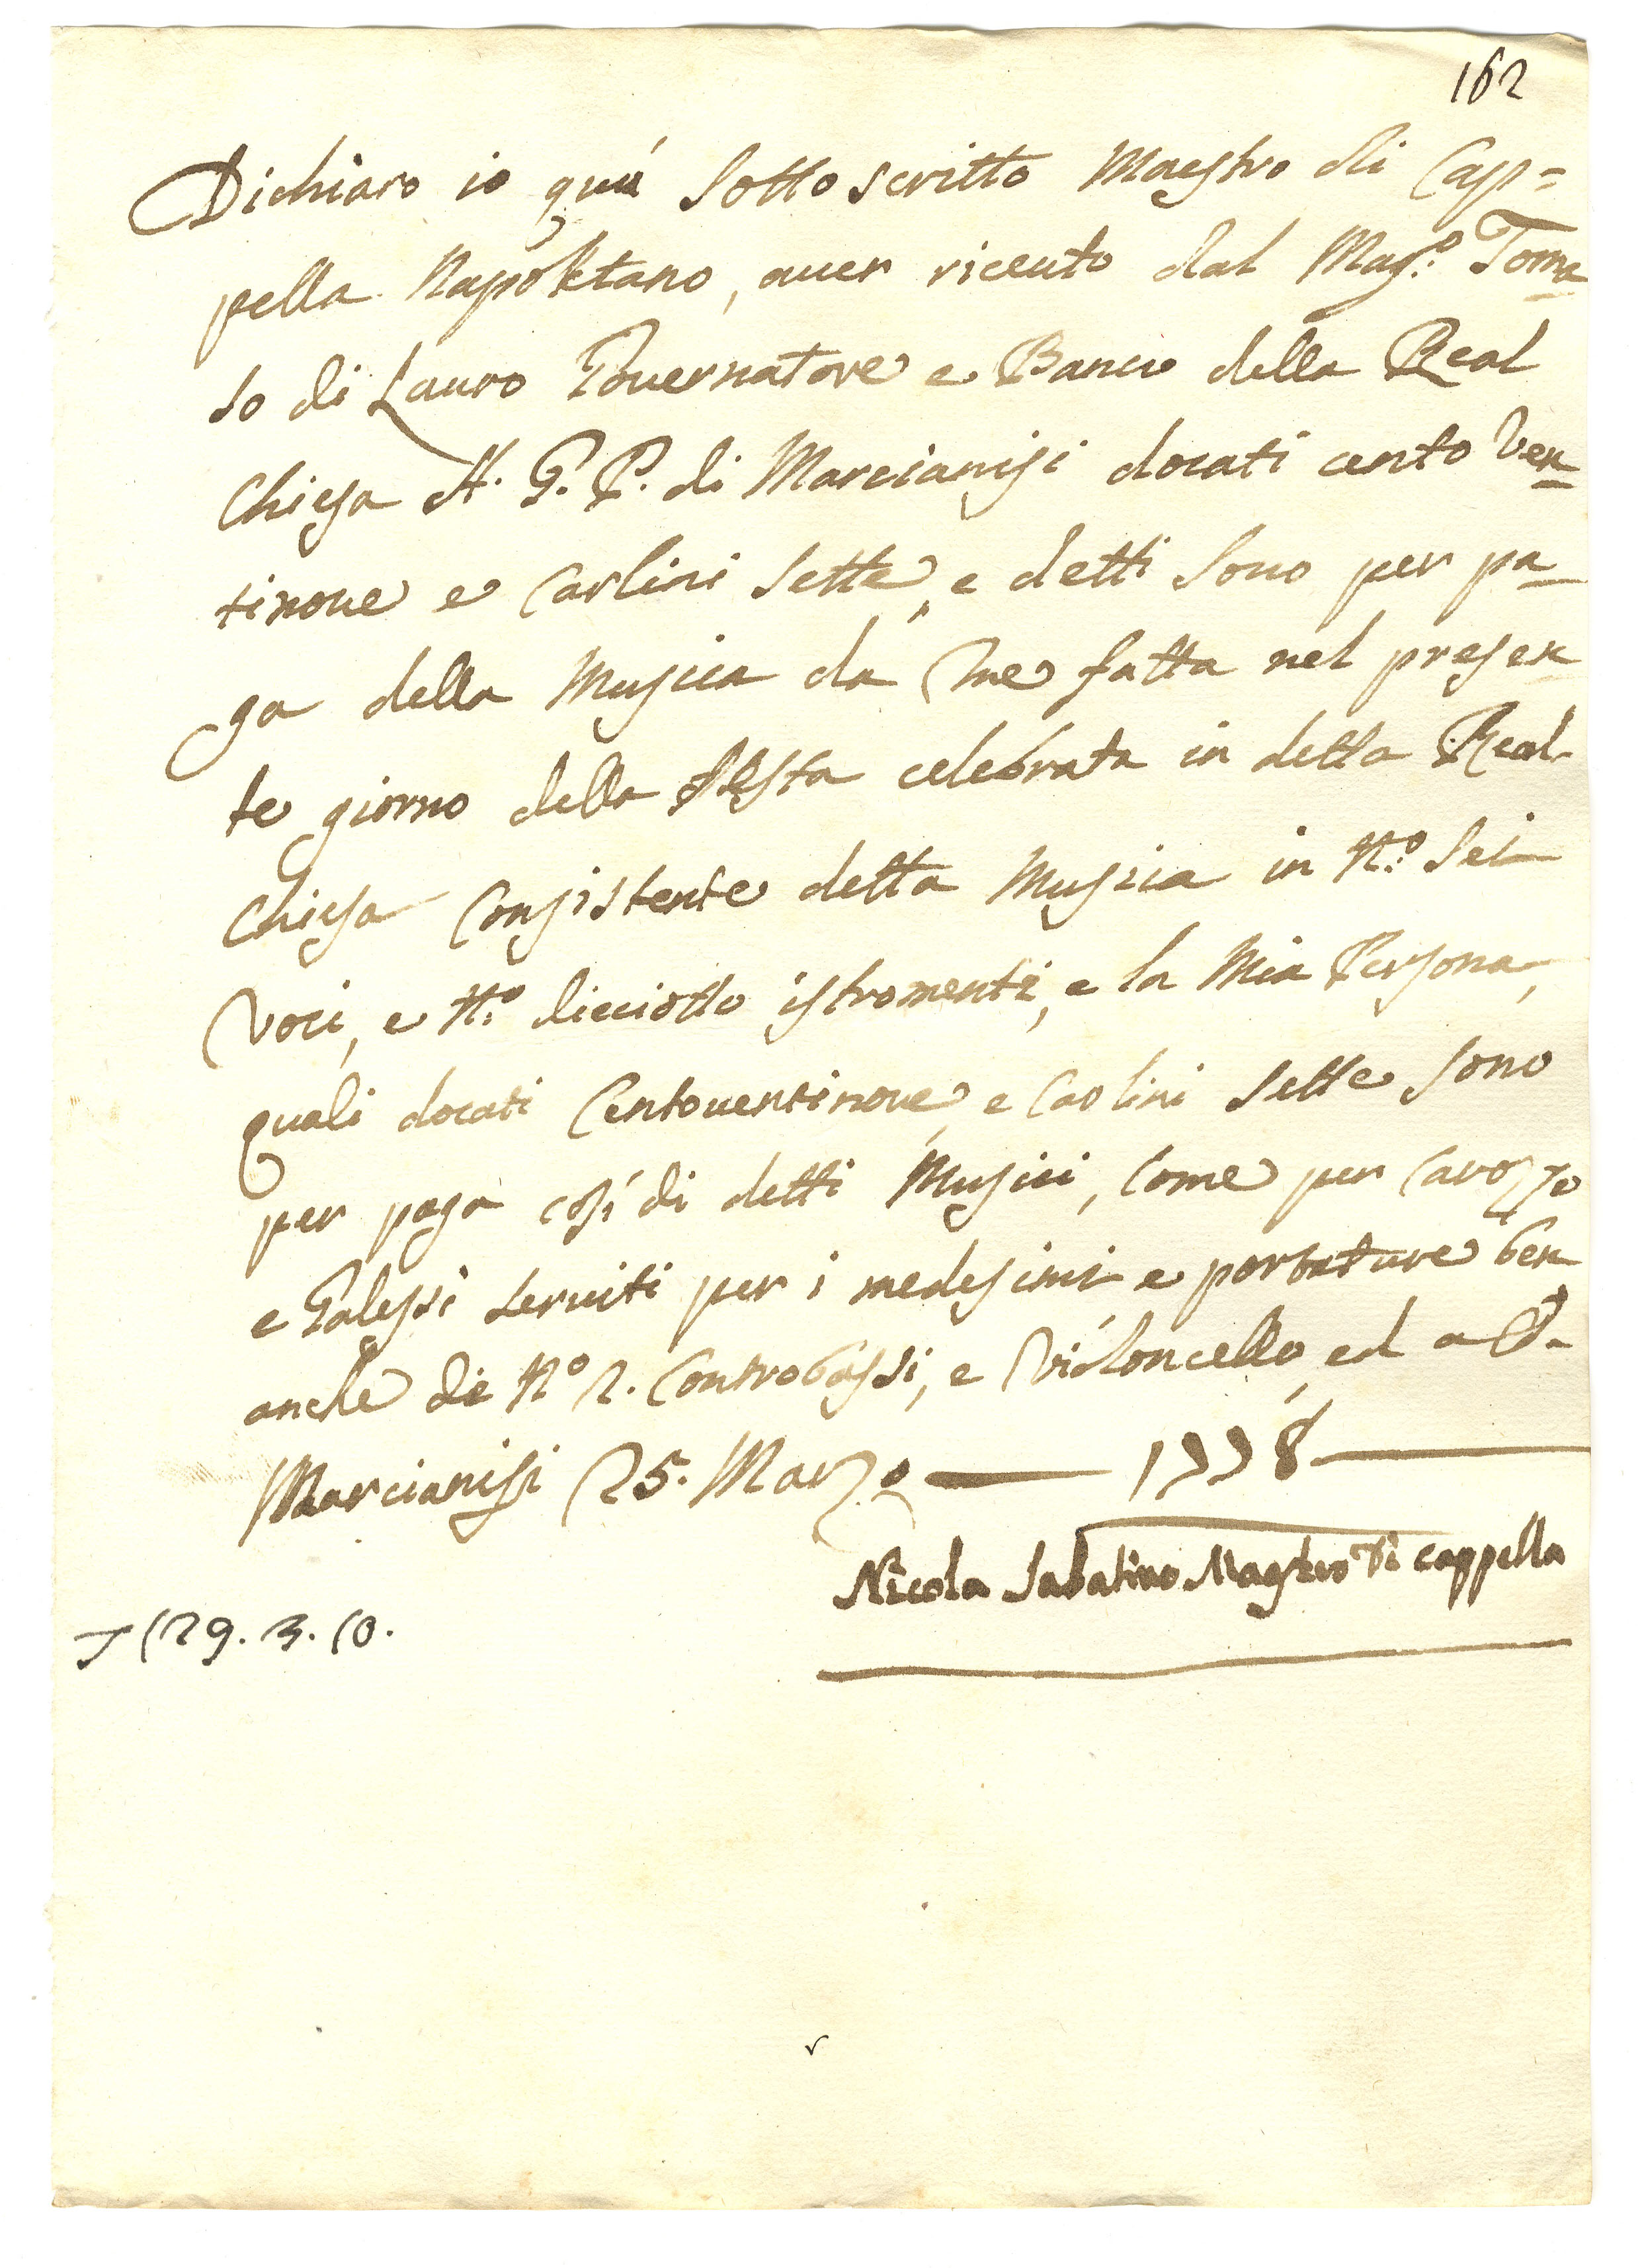 162
Dichiaro io quí sottoscritto Maestro di Cap=
pella Napoletano, auer riceuto dal Mag.o Toma
so di Lauro Gouernatore e Banco della Real
Chiesa A. G. P. di Marcianisi docati cento ven
tinoue e Carlini sette, e detti sono per pa
ga della Musica da me fatta nel presen
te giorno della festa celebrata in detta Real
Chiesa consistente detta Musica in N.o sei
voci, e N.o dieciotto istromenti, e la mia Persona,
quali docati centouentinoue, e Carlini sette sono
per paga cosí di detti Musici, come per carozze
e Galessi seruiti per i medesimi e portature ben
anche di N.o 2. Controbassi, e Violoncello, ed a
Marcianisi 25. Marzo 1778
Nicola Sabatino Maestro di cappella
129. 3. 10.